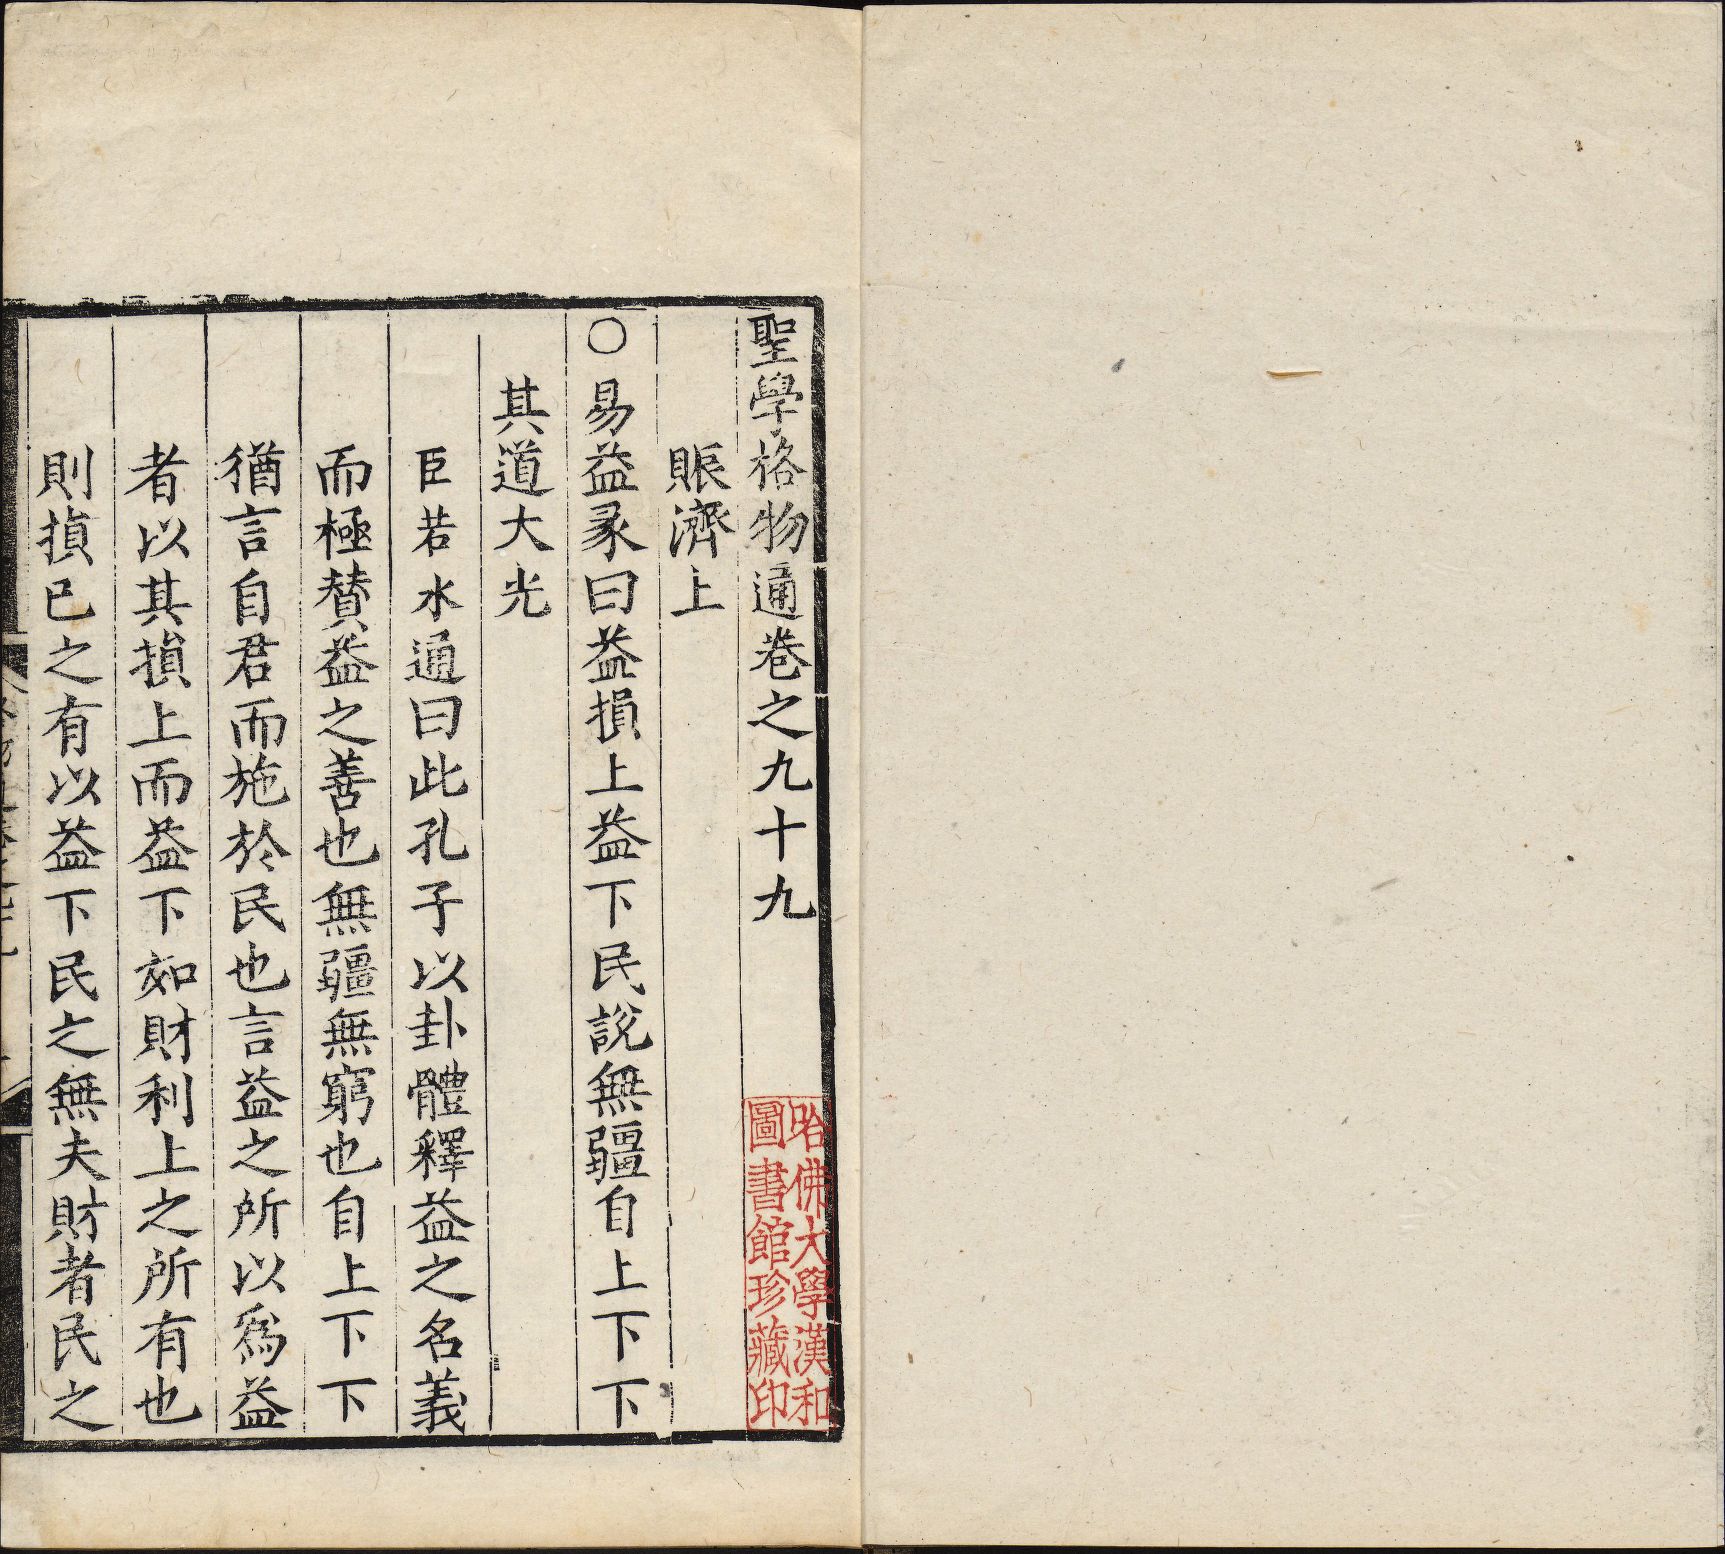 聖學格物通卷之九十九
賑濟上
○易益彖曰益損上益下民說無疆自上下下
其道大光
臣若水通曰此孔子以卦體釋益之名義
而極賛益之善也無疆無窮也自上下下
猶言自君而施於民也言益之所以爲益
者以其損上而益下如財利上之所有也
則損已之有以益下民之無夫財者民之
哈佛大學漢和
圖書館珍藏印